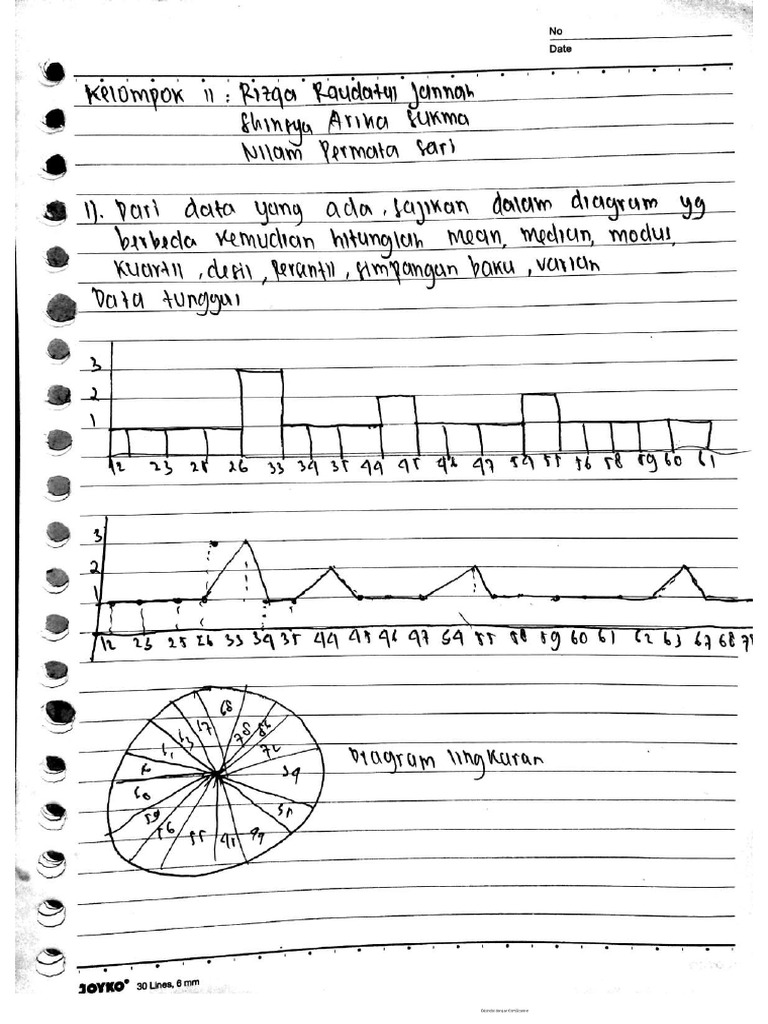 No
Date
Kelompok 11 : Rizqa Raudatul Jannah
Shinsya Arika Sukma
Nilam Permata Sari
1). Dari data yang ada, sajikan dalam diagram yg
berbeda kemudian hitunglah mean, median, modus,
kuartil, desil, perantil, simpangan baku, varian
Data tunggal
3
2
1
12 23 25 26 33 34 35 44 45 46 47 54 55 56 58 59 60 61
3
2
1
12 23 25 26 33 34 35 44 45 46 47 54 55 58 59 60 61 62 63 67 68
68
72
34
35
44
55
56
59
60
Diagram lingkaran
JOYKO 30 Lines, 6 mm